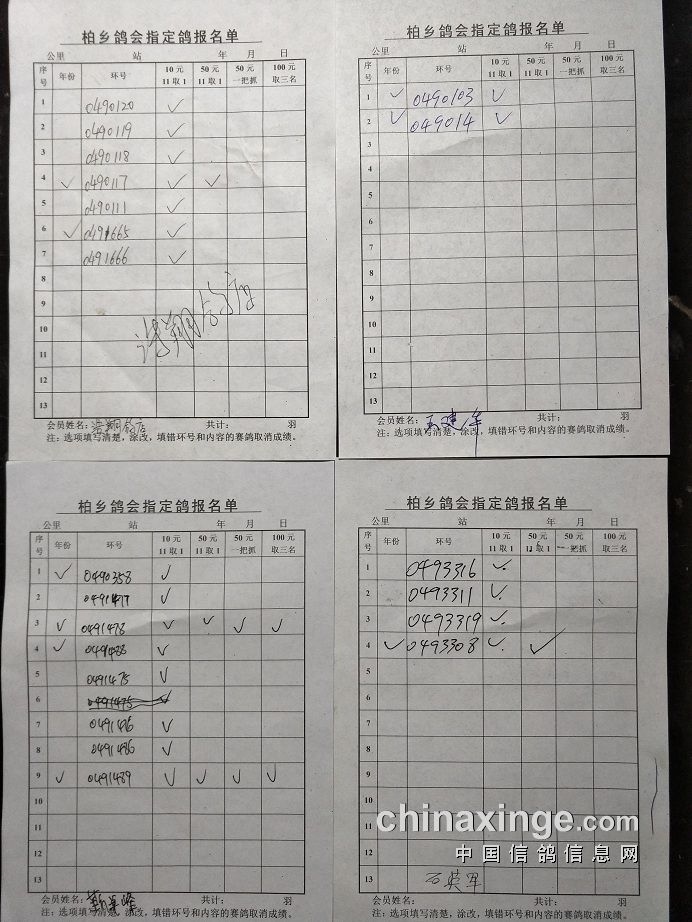 柏乡鸽会指定鸽报名单
公里 站 年 月 日
序号 年份 环号 10元 11取1 50元 11取1 50元 一把抓 100元 取三名
1 0490120 ✓
2 0490119 ✓
3 0490118 ✓
4 ✓ 0490117 ✓ ✓
5 0490111 ✓
6 ✓ 0491665 ✓
7 0491666 ✓
8
9
10
11
12
13
会员姓名: 共计: 羽
注:选项填写清楚,涂改,填错环号和内容的赛鸽取消成绩。
柏乡鸽会指定鸽报名单
公里 站 年 月 日
序号 年份 环号 10元 11取1 50元 11取1 50元 一把抓 100元 取三名
1 ✓ 0490103 ✓
2 ✓ 049014 ✓
3
4
5
6
7
8
9
10
11
12
13
会员姓名: 共计: 羽
注:选项填写清楚,涂改,填错环号和内容的赛鸽取消成绩。
柏乡鸽会指定鸽报名单
公里 站 年 月 日
序号 年份 环号 10元 11取1 50元 11取1 50元 一把抓 100元 取三名
1 ✓ 0490358 ✓
2 0491477 ✓
3 ✓ 0491478 ✓ ✓ ✓ ✓
4 ✓ 0491488 ✓
5 0491475 ✓
6
7 0491476 ✓
8 0491486 ✓
9 ✓ 0491489 ✓ ✓ ✓ ✓
10
11
12
13
会员姓名: 共计: 羽
注:选项填写清楚,涂改,填错环号和内容的赛鸽取消成绩。
柏乡鸽会指定鸽报名单
公里 站 年 月 日
序号 年份 环号 10元 11取1 50元 11取1 50元 一把抓 100元 取三名
1 0493316 ✓
2 0493311 ✓
3 0493319 ✓
4 ✓ 0493308 ✓ ✓
5
6
7
8
9
10
11
12
13 石英军
会员姓名: 共计: 羽
注:选项填写清楚,涂改,填错环号和内容的赛鸽取消成绩。
chinaxinge.com
中国信鸽信息网